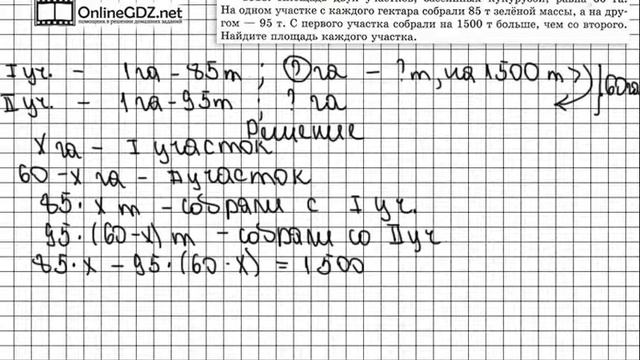 OnlineGDZ.net
помощник в решении домашних заданий
На одном участке с каждого гектара собрали 85 т зелёной массы, а на дру-
гом — 95 т. С первого участка собрали на 1500 т больше, чем со второго.
Найдите площадь каждого участка.
I уч. - 1 га - 85 т ; ? га - ? т, на 1500 т > 60 га
II уч. - 1 га - 95 т ; ? га
Решение
X га - I участок
60 - X га - II участок
85 · X т - собрали с I уч.
95 · (60 - X) т - собрали со II уч
85 · X - 95 · (60 - X) = 1500